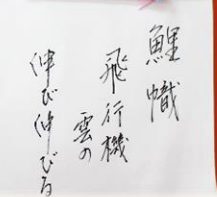 鯉幟
飛行機
雲の
伸び伸びる